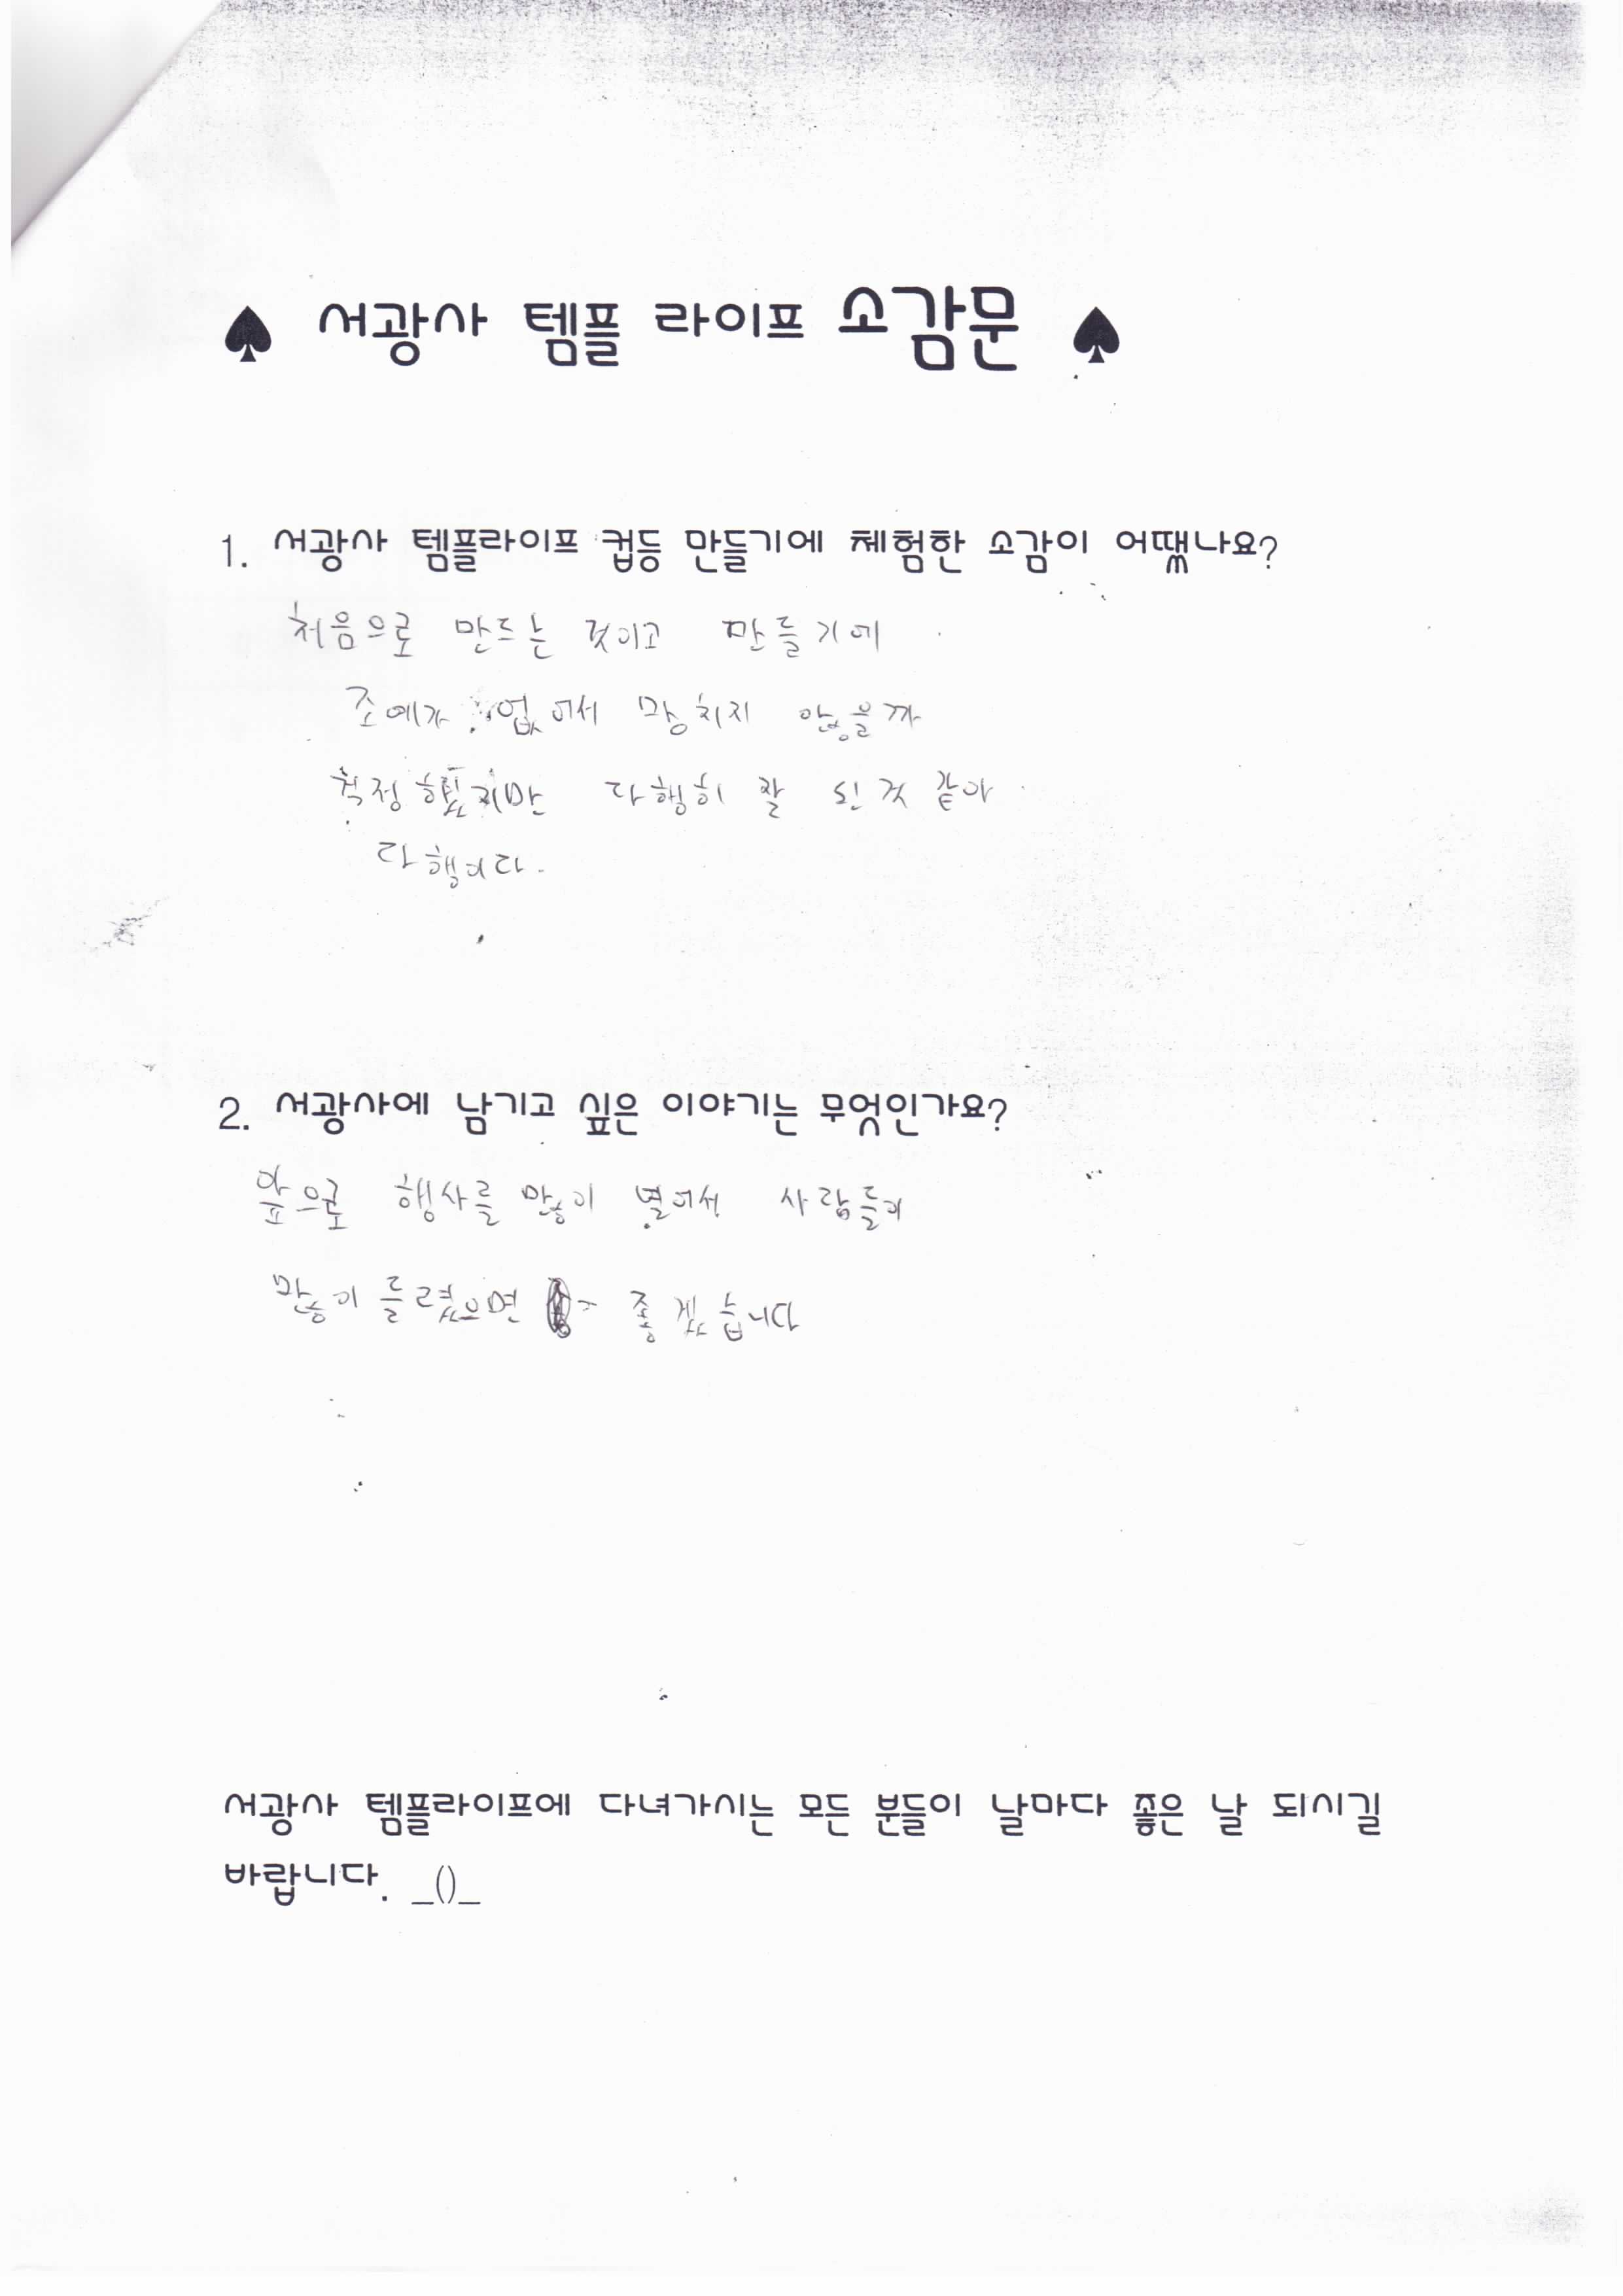 ♠ 서광사 템플 라이프 소감문 ♠
1. 서광사 템플라이프 컵등 만들기에 체험한 소감이 어땠나요?
처음으로 만드는 것이고 만들기에
조예가 없어서 망치지 않을까
걱정했지만 다행히 잘 된것 같아
다행이다.
2. 서광사에 남기고 싶은 이야기는 무엇인가요?
앞으로 행사를 많이 열어서 사람들이
많이 들렸으면 좋겠습니다
서광사 템플라이프에 다녀가시는 모든 분들이 날마다 좋은 날 되시길
바랍니다. _()_